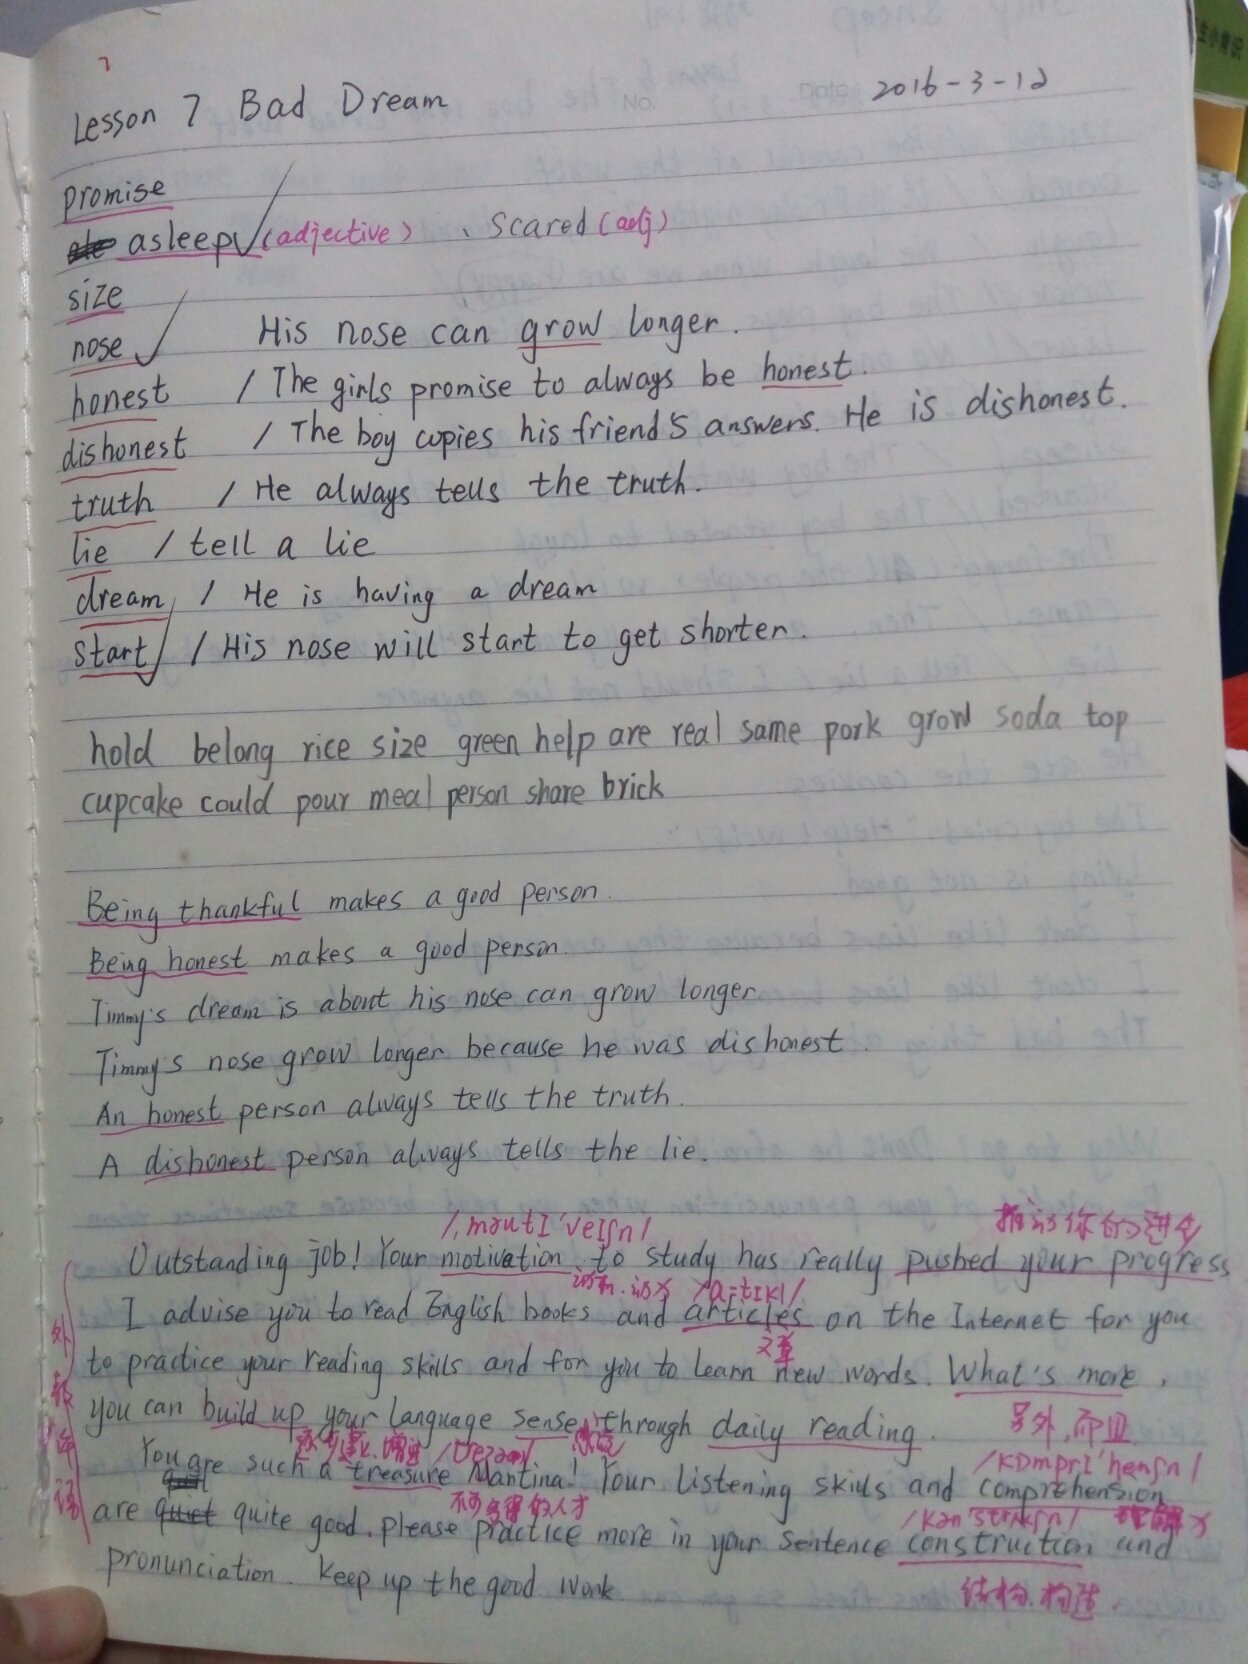 Lesson 7 Bad Dream No. Date 2016-3-12
promise
asleep (adjective) 、Scared (adj)
size
nose His nose can grow longer.
honest / The girls promise to always be honest.
dishonest / The boy copies his friend's answers. He is dishonest.
truth / He always tells the truth.
lie / tell a lie
dream / He is having a dream
start / His nose will start to get shorter.
hold belong rice size green help are real same pork grow soda top
cupcake could pour meal person share brick
Being thankful makes a good person.
Being honest makes a good person.
Timmy's dream is about his nose can grow longer.
Timmy's nose grow longer because he was dishonest.
An honest person always tells the truth.
A dishonest person always tells the lie.
/ˌməʊtɪ'veɪʃn/ 推动你的进步
Outstanding job! Your motivation to study has really pushed your progress
动机.动力 /'ɑ:tɪkl/
I advise you to read English books and articles on the Internet for you
文章
to practice your reading skills and for you to learn new words. What's more,
you can build up your language sense through daily reading.
另外,而且
/kɒmprɪ'henʃn/
You are such a treasure Mantina! Your listening skills and comprehension
不可多得的人才 /kən'strʌkʃn/ 理解力
are quiet quite good. Please practice more in your sentence construction and
pronunciation. Keep up the good work.
结构.构造.
外教评语